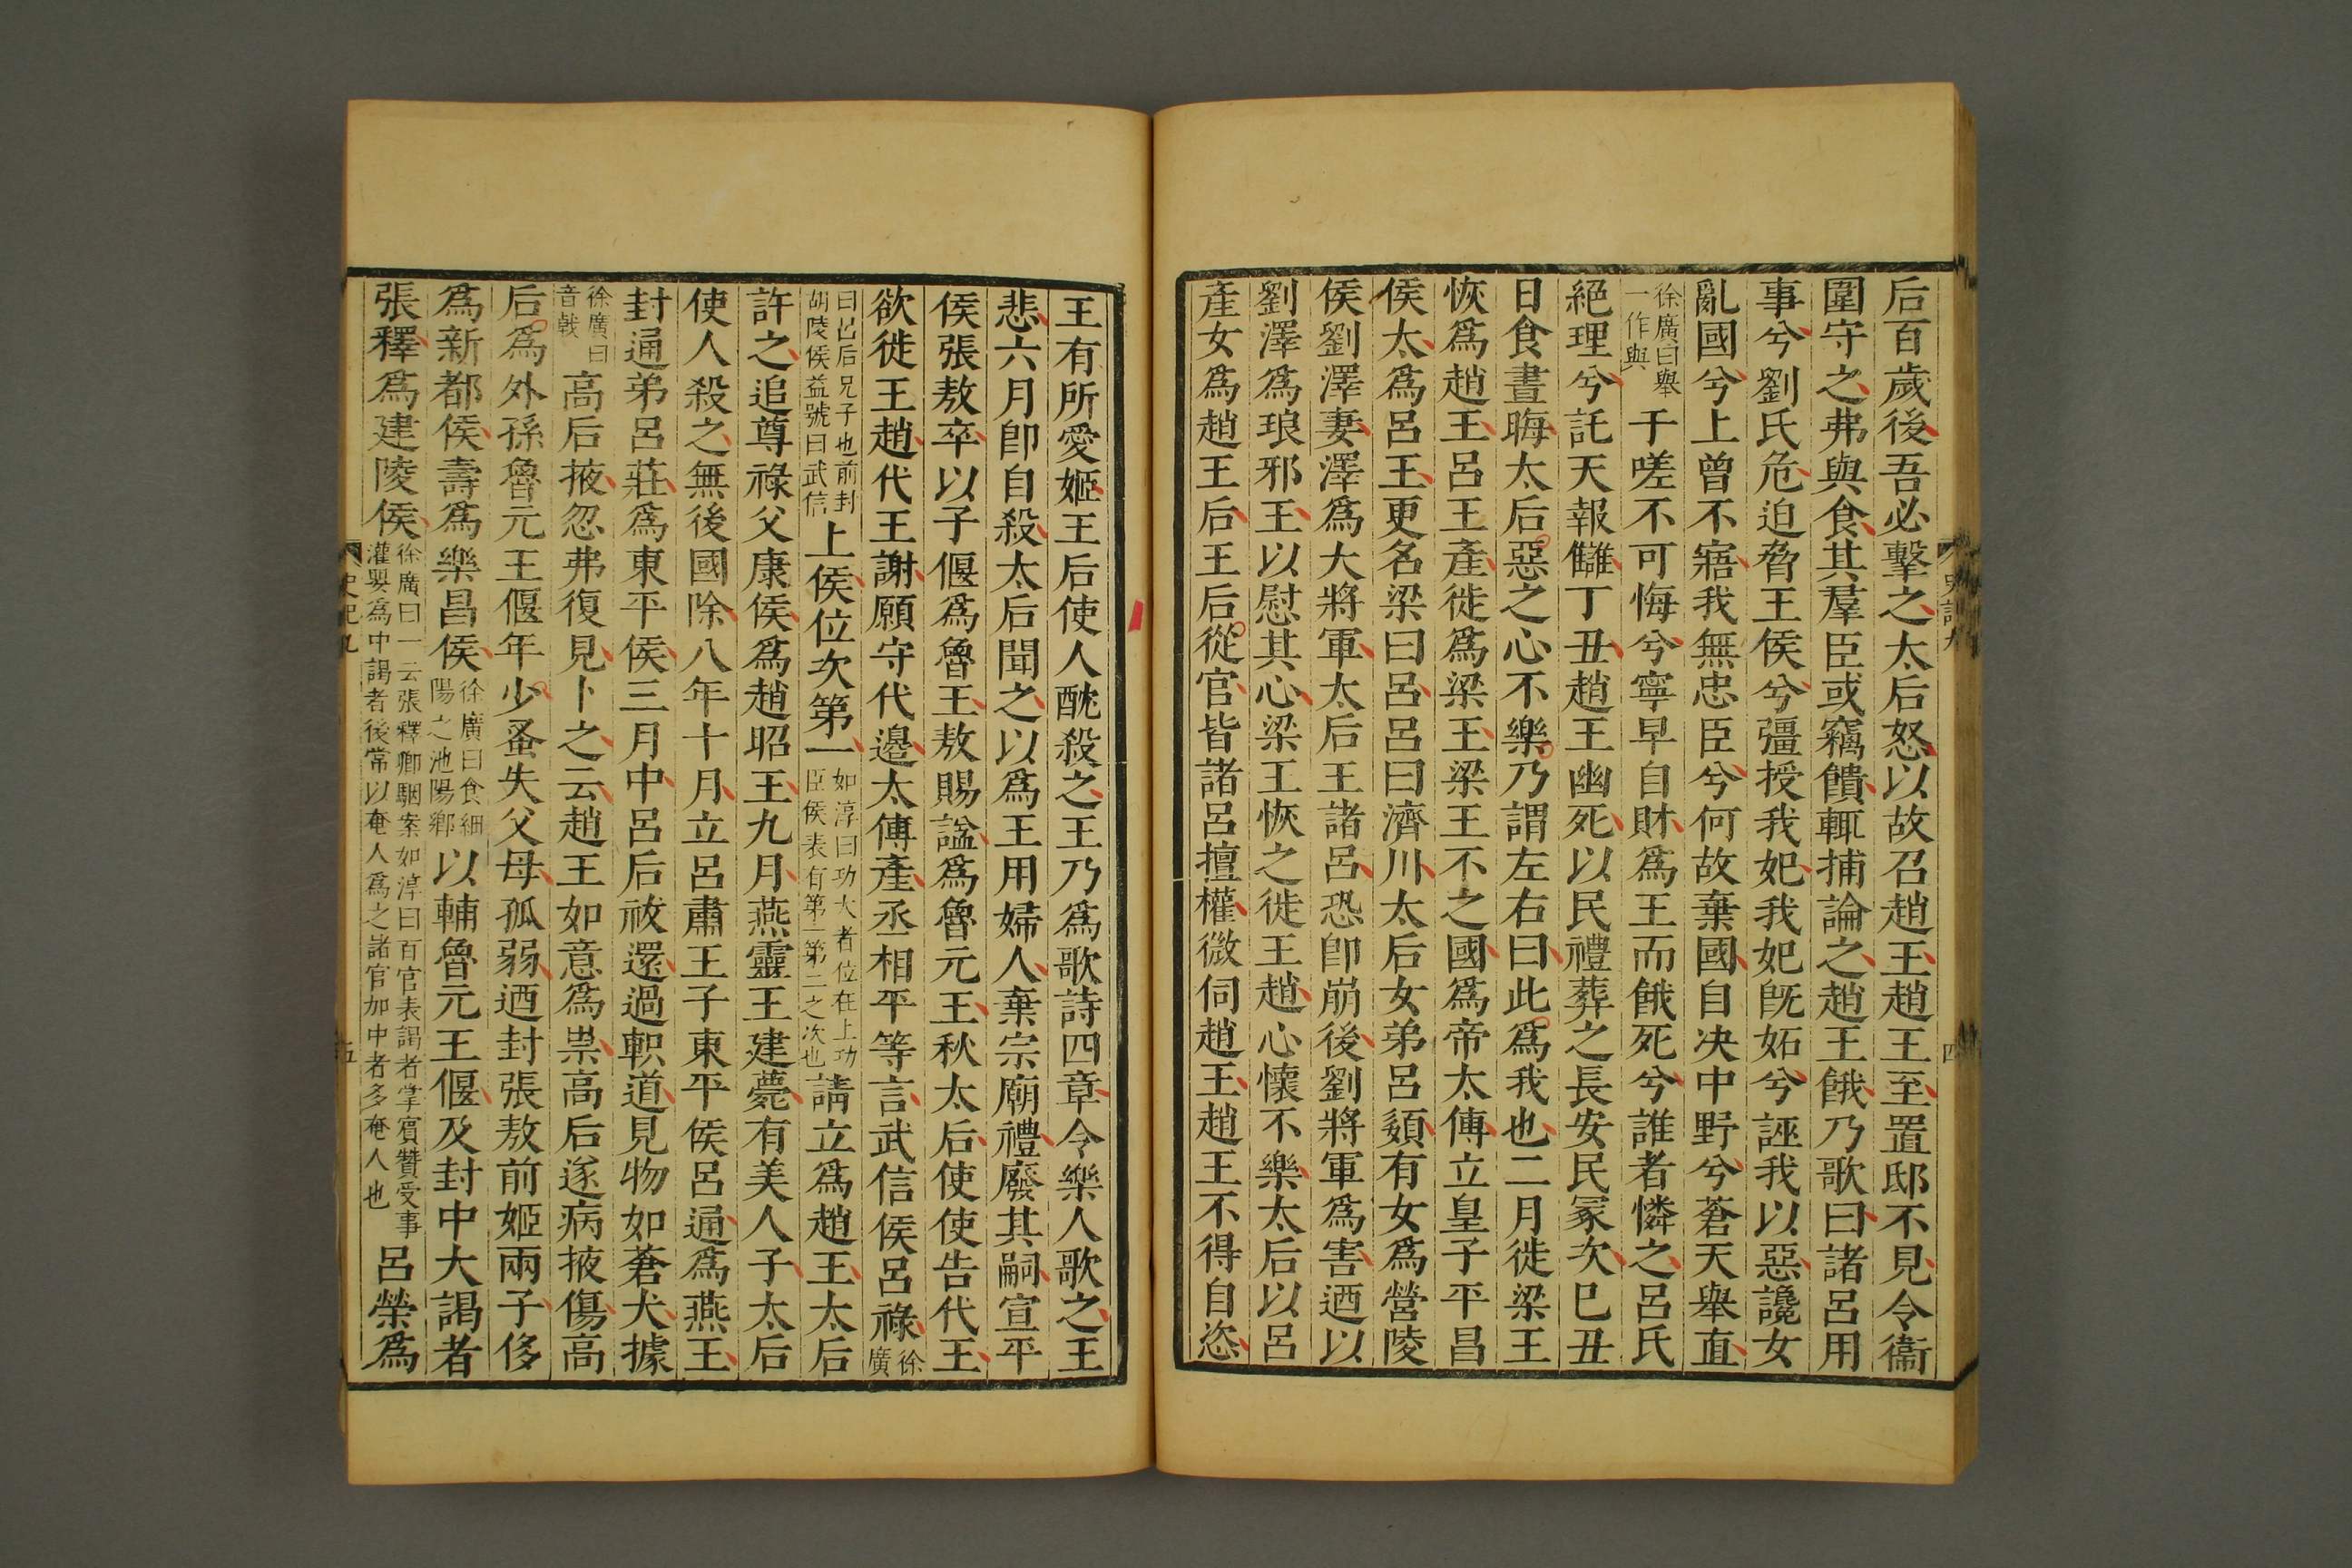 后百歲後吾必擊之太后怒以故召趙王趙王至置邸不見令衞
圍守之弗與食其羣臣或竊饋輒捕論之趙王餓乃歌曰諸呂用
事兮劉氏危迫脅王侯兮彊授我妃我妃旣妬兮誣我以惡讒女
亂國兮上曾不寤我無忠臣兮何故棄國自決中野兮蒼天舉直
徐廣曰舉
一作與
于嗟不可悔兮寧早自財爲王而餓死兮誰者憐之呂氏
絕理兮託天報讎丁丑趙王幽死以民禮葬之長安民冢次巳丑
日食晝晦太后惡之心不樂乃謂左右曰此爲我也二月徙梁王
恢爲趙王呂王產徙爲梁王梁王不之國爲帝太傅立皇子平昌
侯太爲呂王更名梁曰呂呂曰濟川太后女弟呂嬃有女爲營陵
侯劉澤妻澤爲大將軍太后王諸呂恐卽崩後劉將軍爲害迺以
劉澤爲琅邪王以慰其心梁王恢之徙王趙心懷不樂太后以呂
產女爲趙王后王后從官皆諸呂擅權微伺趙王趙王不得自恣
史記九
四
王有所愛姬王后使人酖殺之王乃爲歌詩四章令樂人歌之王
悲六月卽自殺太后聞之以爲王用婦人棄宗廟禮廢其嗣宣平
侯張敖卒以子偃爲魯王敖賜諡爲魯元王秋太后使使告代王
欲徙王趙代王謝願守代邊太傅產丞相平等言武信侯呂祿
徐
廣
曰呂后兄子也前封
胡陵侯益號曰武信
上侯位次第一
如淳曰功大者位在上功
臣侯表有第一第二之次也
請立爲趙王太后
許之追尊祿父康侯爲趙昭王九月燕靈王建薨有美人子太后
使人殺之無後國除八年十月立呂肅王子東平侯呂通爲燕王
封通弟呂莊爲東平侯三月中呂后祓還過軹道見物如蒼犬據
徐廣曰
音戟
高后掖忽弗復見卜之云趙王如意爲祟高后遂病掖傷高
后爲外孫魯元王偃年少蚤失父母孤弱迺封張敖前姬兩子侈
爲新都侯壽爲樂昌侯
徐廣曰食細
陽之池陽鄉
以輔魯元王偃及封中大謁者
張釋爲建陵侯
徐廣曰一云張釋卿駰案如淳曰百官表謁者掌賓贊受事
灌嬰爲中謁者後常以奄人爲之諸官加中者多奄人也
呂榮爲
史記九
五